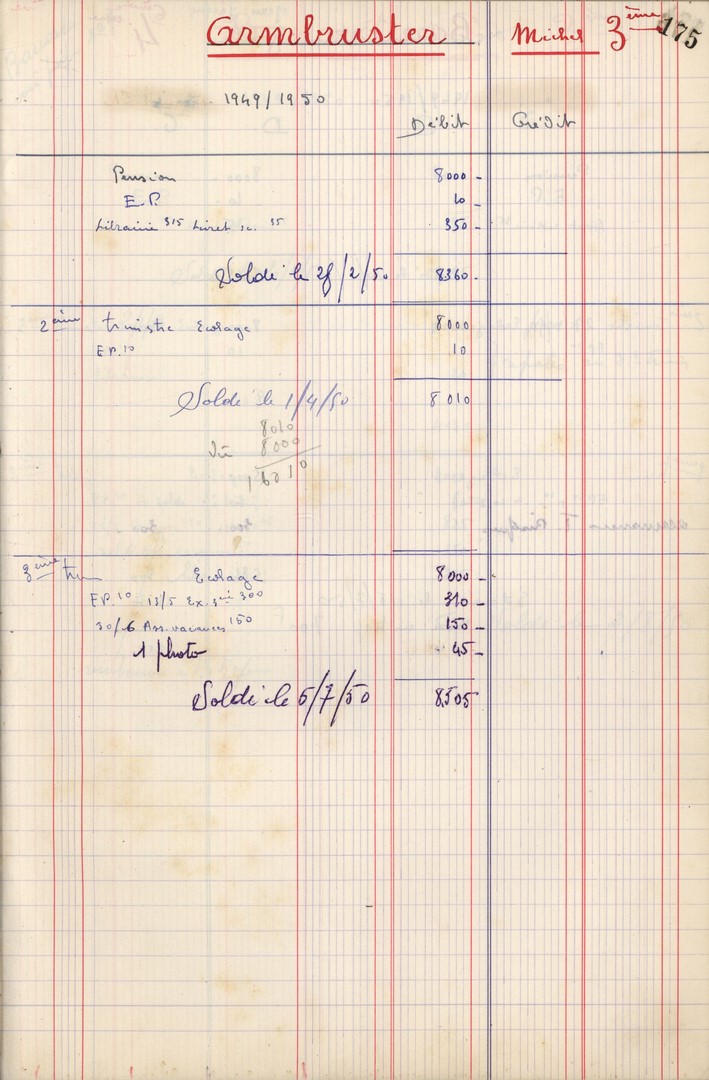 Armbruster Michel 3ème 175
1949/1950
Débit Crédit
Pension 8000 -
E.P. 10 -
Librairie 315 Livret sc. 35 350 -
Soldé le 28/2/50 8360 -
2ème trimstre Ecolage 8000
E P. 10 10
Soldé le 1/4/50 8010
8010
8000
16010
3ème trim Ecolage 8000 -
E P. 10 13/5 Ex. 300 310 -
30/6 Ass. vacances 150 150 -
1 photo 45 -
Soldé le 5/7/50 8505